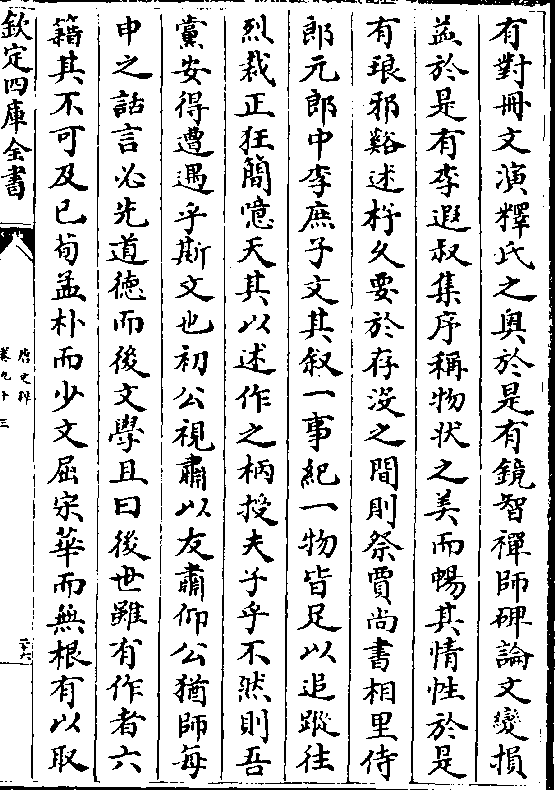 有對冊文演釋氏之奥於是有鏡智禪師碑論文變損
益於是有李遐叔集序稱物狀之美而暢其情性於是
有琅邪谿述杼久要於存沒之間則祭賈尚書相里侍
郎元郎中李庶子文其叙一事紀一物皆足以追蹤往
烈裁正狂簡噫天其以述作之柄授夫子乎不然則吾
黨安得遭遇乎斯文也初公視肅以友肅仰公猶師每
申之話言必先道德而後文學且曰後世雖有作者六
籍其不可及已荀孟朴而少文屈宋華而無根有以取
欽定四庫全書
唐文粹
卷九十三
二十六